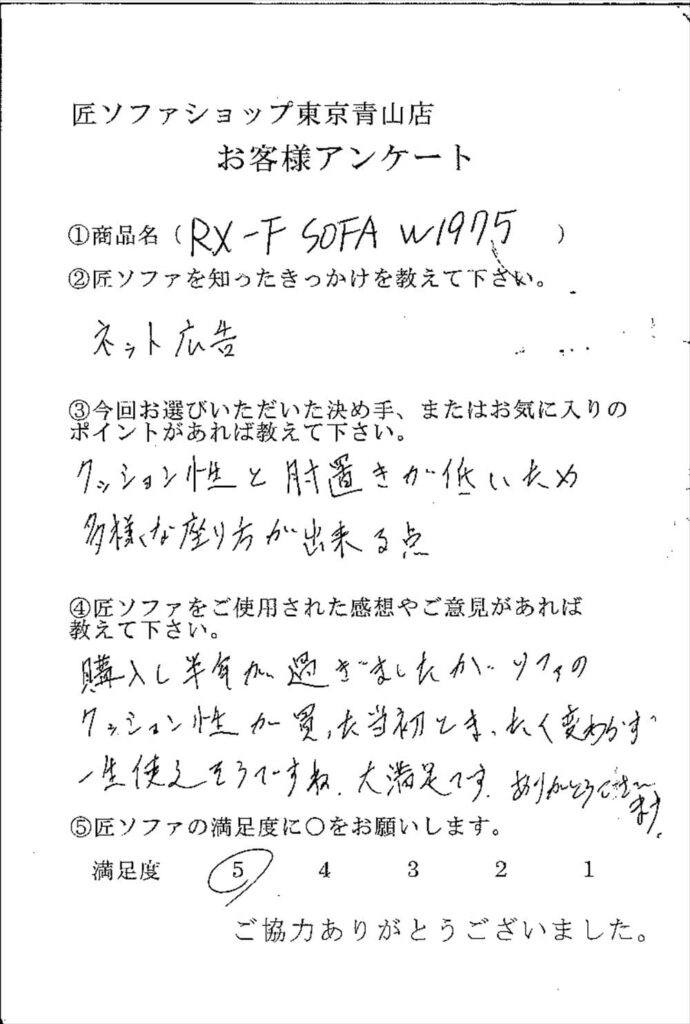 匠ソファショップ東京青山店
お客様アンケート
①商品名（RX-F SOFA W1975）
②匠ソファを知ったきっかけを教えて下さい。
ネット広告
③今回お選びいただいた決め手、またはお気に入りの
ポイントがあれば教えて下さい。
クッション性と肘置きが低いため
多様な座り方が出来る点
④匠ソファをご使用された感想やご意見があれば
教えて下さい。
購入し半年が過ぎましたがソファの
クッション性が買った当初とまったく変わらず
一生使えそうですね。大満足です。ありがとうござい
ます。
⑤匠ソファの満足度に○をお願いします。
満足度 5 4 3 2 1
ご協力ありがとうございました。